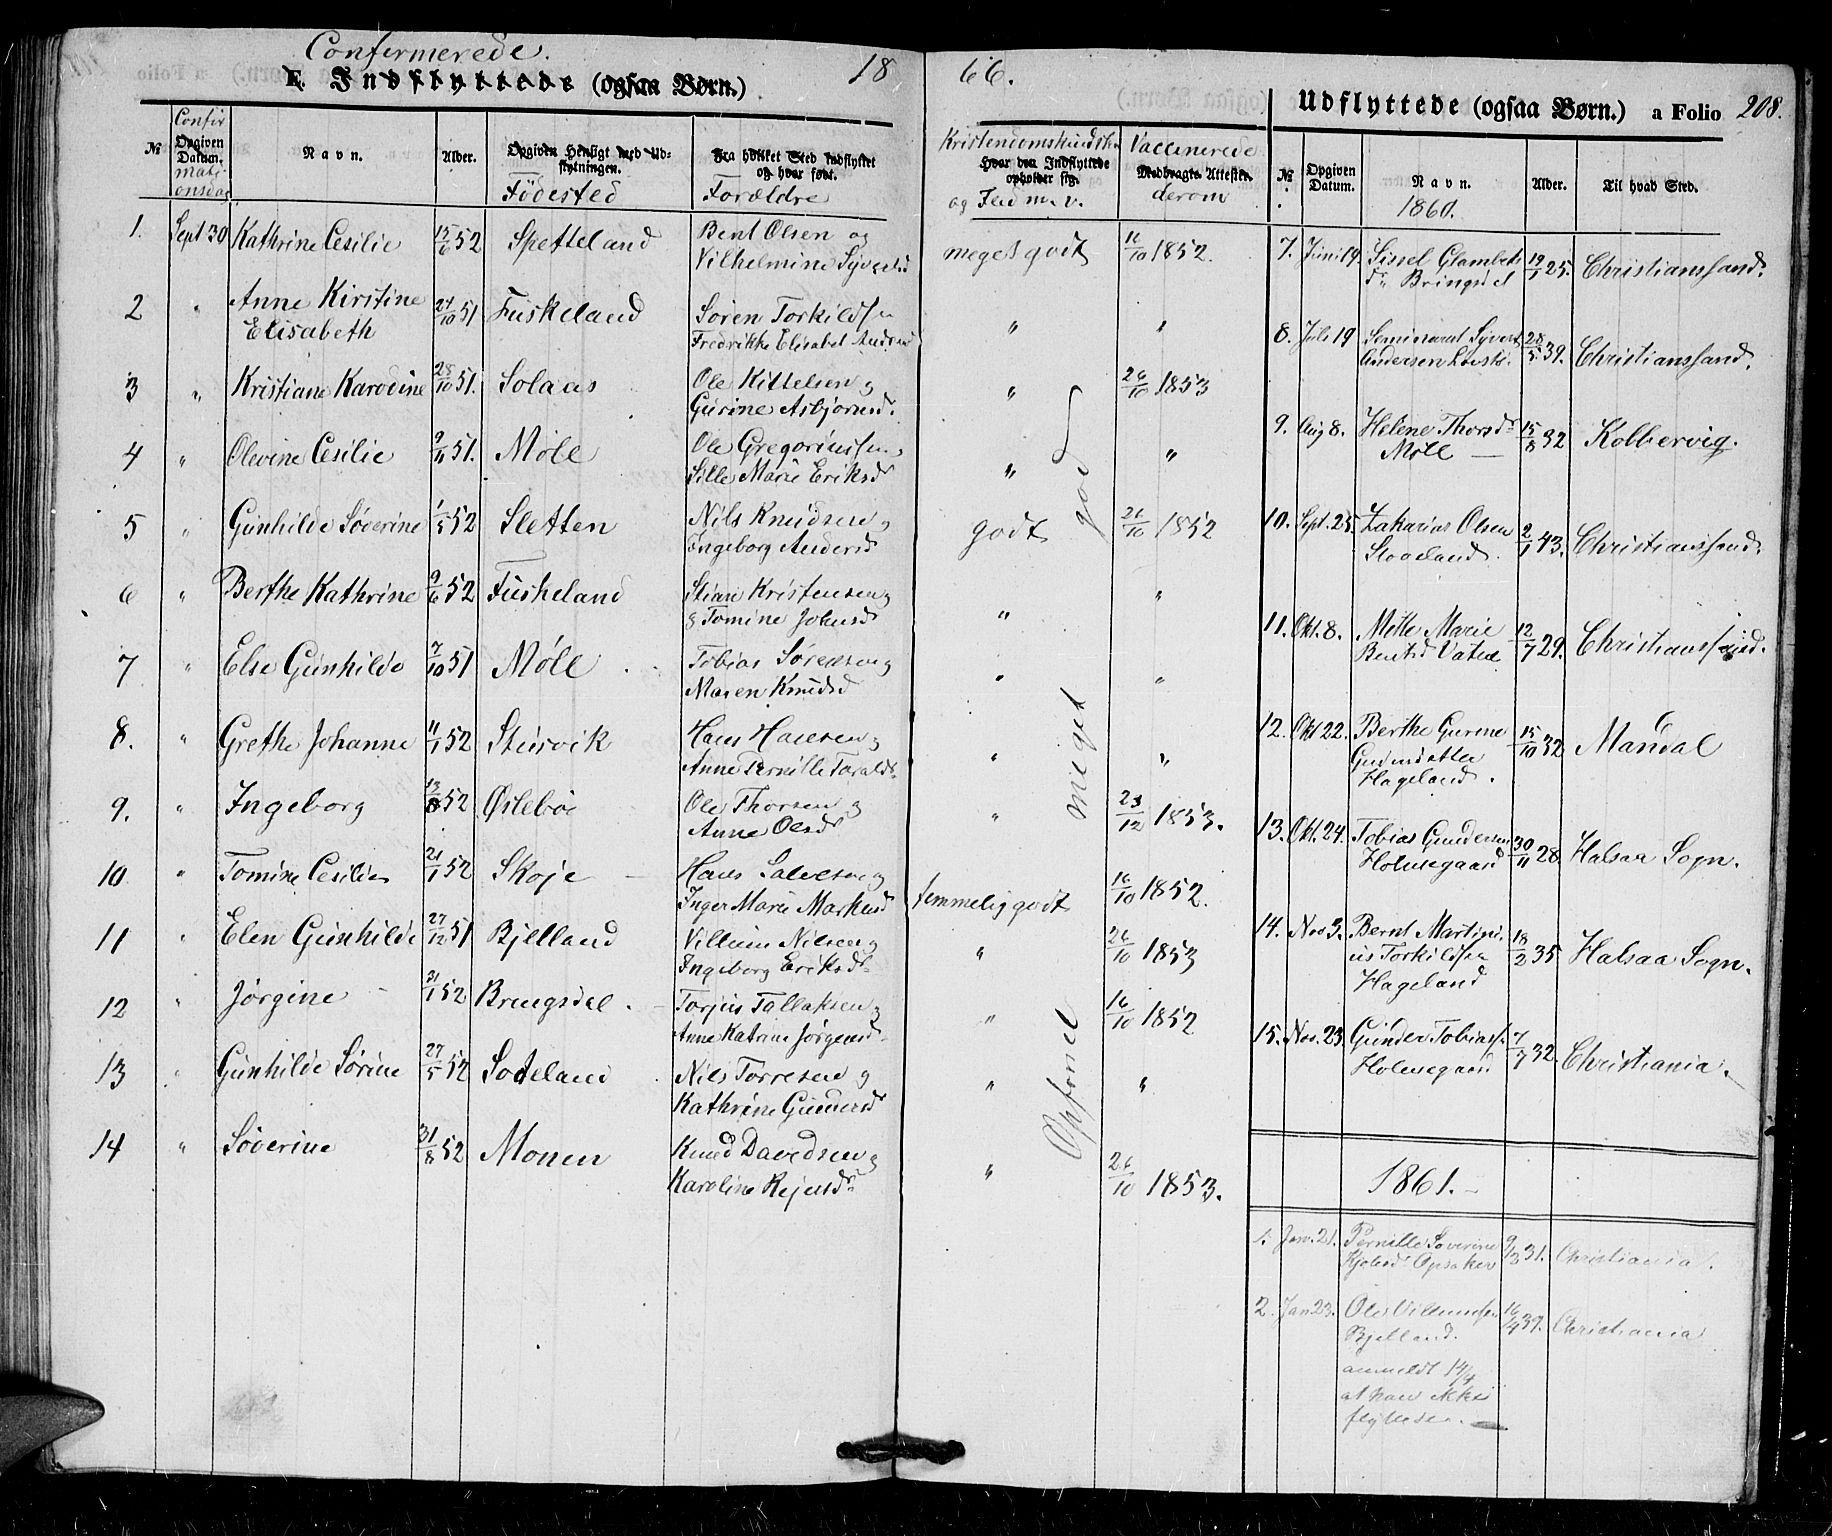 Confermerede.
E. Indflyttede (ogsaa Børn.)
18
66.
Udflyttede (ogsaa Børn.) a Folio 208.
№ Confir Opgiven Datum. mati- onsdag Navn. Alder. Opgiven Henligt med Ud- flytningen. Fødested Fra hvilket Sted indflyttet og hvor født. Forældre
Kristendomskundska Hvor den Indflyttede opholder sig. og Flid m. v. Vaccinerede Medbragte Attester. derom
№ Opgiven Datum. Navn. Alder. Til hvad Sted.
1860.
1. Sept 30 Kathrine Cesilie 15/6 52 Spetteland Bent Olsen og meget godt 16/10 1852.
Vilhelmine Syvertsd
2 " Anne Kirstine 24/10 51 Fuskeland Soren Torkildsen " "
Elisabeth Fredrikke Elisabet Andersd
3 " Kristiane Karoline 28/10 51. Solaas Ole Kittelsen og " 26/10 1853
Gurine Asbjornsd.
4 " Olevine Cesilie 9/11 51. Møll Ole Gregoriussen, " "
Sille Marie Eriksd
5 " Gunhilde Søverine 1/5 52 Sletten Nils Knudsen og godt 26/10 1852
Ingeborg Andersd
6 " Berthe Kathrine 9/6 52 Fuskeland Stian Kristensen og " "
g Tomine Johnsd
7 " Else Gunhilde 7/10 51 Møll Tobias Sørensen og " "
Maren Knudsd
8. " Grethe Johanne 11/1 52 Stusvik Hans Hansen og " "
Anne Pernille Taralds.
9. " Ingeborg 13/8 52 Østebø Ole Thorsen og " 23/12 1853.
Anne Olsd
10 " Tomine Cesilie 21/1 52 Skoje Hans Salvesen og temmelig godt 16/10 1852.
Inger Marie Markusd
11 " Elen Gunhilde 27/12 51 Bjelland Villum Nilsen og " 26/10 1853
Ingeborg Eriksd
12 " Jørgine 31/1 52 Bringsdal. Torjus Tallaksen og " 16/10 1852
Anne Katrine Jørgensd
13 " Gunhilde Sørine 27/5 52 Sodeland Nils Torresen og " "
Kathrine Gundersd
14 " Søverine 31/8 52 Monen Knud Davidsen og " 26/10 1853.
Karoline Rejersd
Opførsel meget god
7. Juni 19. Sissel Glambeks 19/1 25. Christianssand.
dr Bringsdal
8. Juli 19 Seminarist Syvert 28/5 39. Christianssand.
Andersen
9. Aug 8. Helene Thorsdr 15/8 32 Kolbervig.
Møll
10. Sept. 25. Zakarias Olsen 2/1 43. Christianssand.
11. Okt. 8. Mette Marie 12/7 29. Christianssand.
Bentsd Vatne
12. Okt 22. Berthe Gurine 15/10 32 Mandal
Gudmdatter
Hageland.
13. Okt. 24. Tobias Gundersen 30/11 28 Halsaa Sogn.
Holmegaard
14. Nov 3. Bernt Martini- 18/2 35 Halsaa Sogn.
us Torkildsen
Hageland
15. Nov. 23 Gunder Tobiass. 7/7 32. Christiania.
Holmegaard
1861.
1. Jan. 21. Pernille Soverine 9/3 31. Christiania.
Opsaker
2. Jan 23. Ole Villumsen 16/4 39. Christiania
Bjelland.
anmeldt 14/4
at han ikke
flyttede.